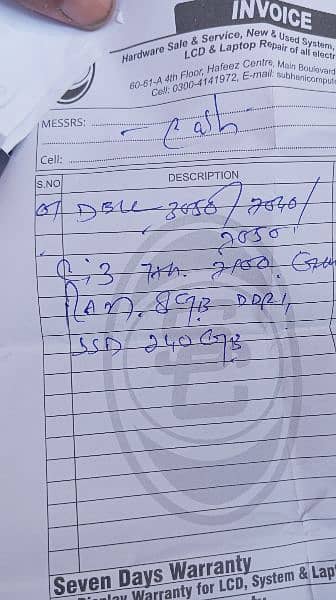 INVOICE
Hardware Sale & Service, New & Used System,
LCD & Laptop Repair of all electr
60-61-A 4th Floor, Hafeez Centre, Main Boulevard
Cell: 0300-4141972, E-mail: subhanicompute
MESSRS: Cash
Cell:
S.NO DESCRIPTION
01 DELL 3050/7040/
7050
C i3 7th.
RAM. 8GB DDR
SSD 240GB
Seven Days Warranty
Display Warranty for LCD, System & Lap